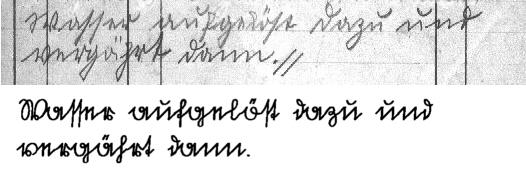 Wasser aufgelöst dazu und
vergährt dann.//
Wasser aufgelöst dazu und
vergährt dann.